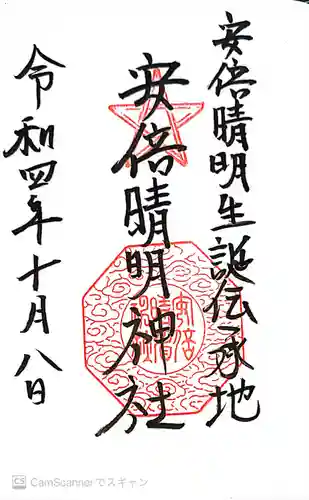 安倍晴明生誕伝承地
安倍晴明神社
令和四年十月八日
CS CamScanner でスキャン